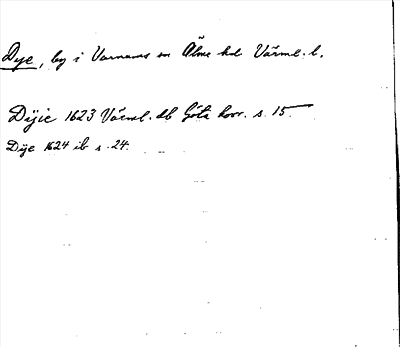 Dye, by i Varnums sn Älme hd Värml. l.
Dijie 1623 Värml. db Göta hovr. s. 15.
Dije 1624 ib s. 24.